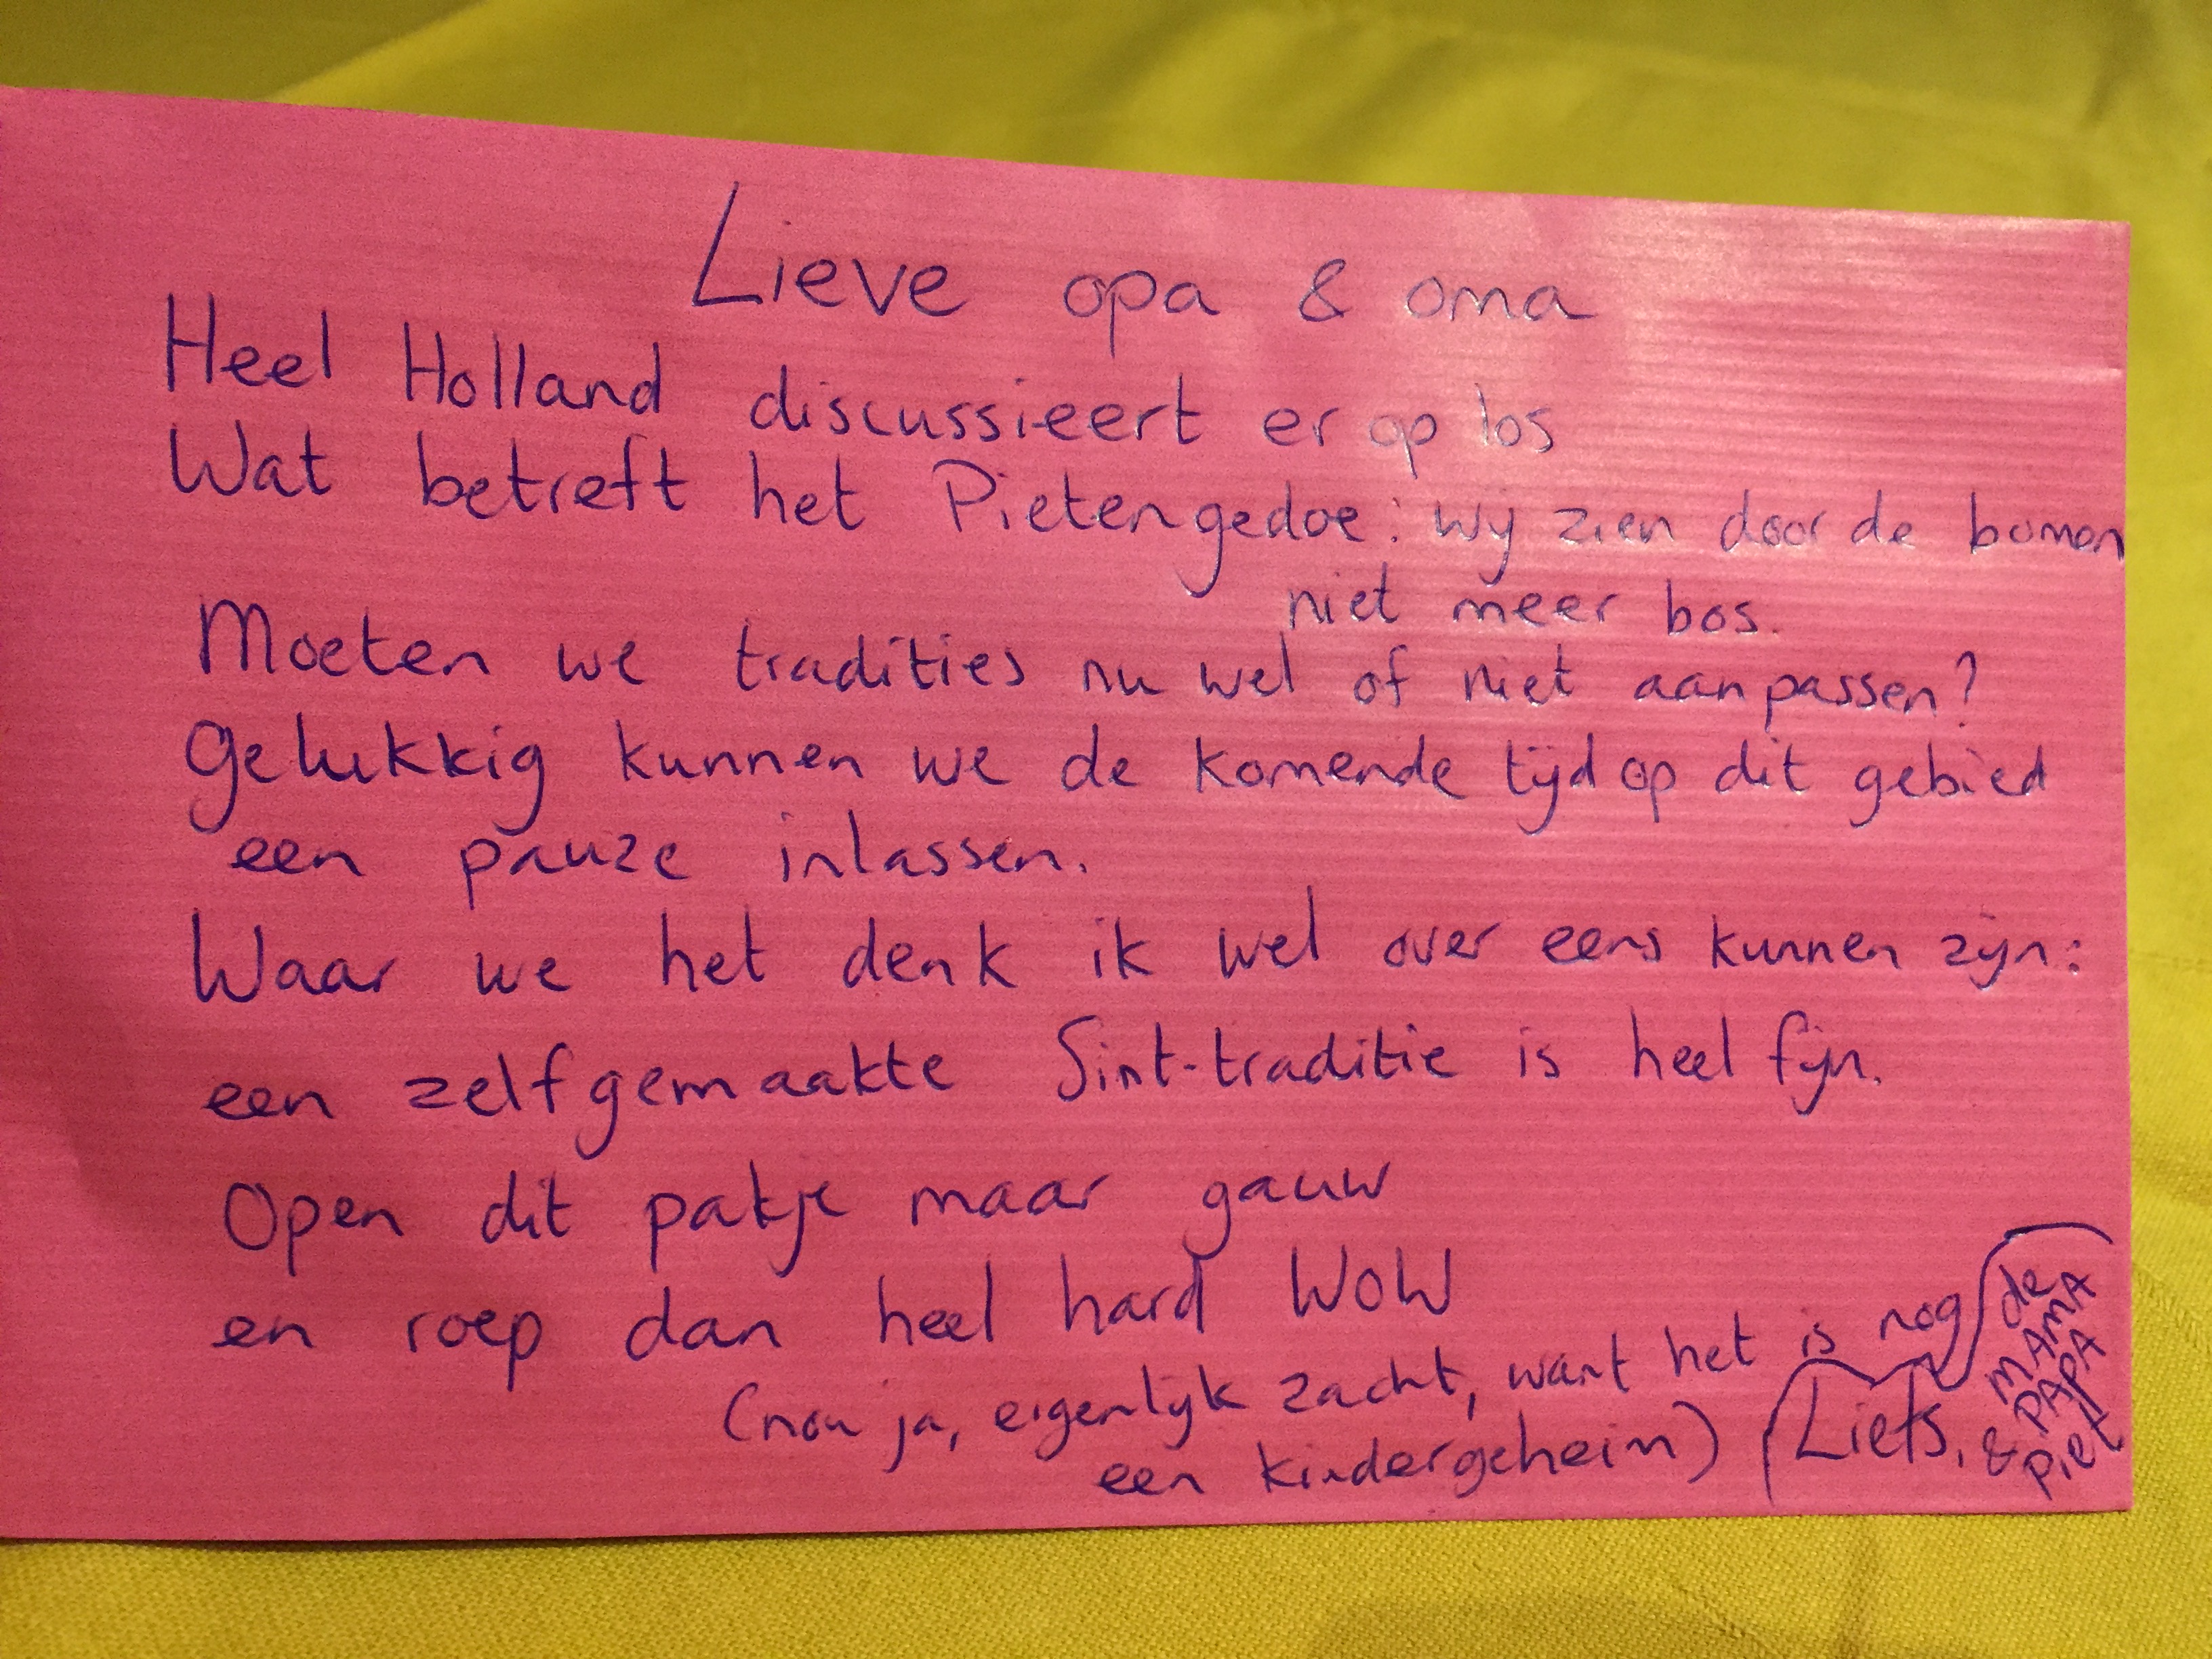 Lieve opa & oma
Heel Holland discussieert er op los
Wat betreft het Pietengedoe: wij zien door de bomen
niet meer bos.
Moeten we tradities nu wel of niet aanpassen?
Gelukkig kunnen we de komende tijd op dit gebied
een pauze inlassen.
Waar we het denk ik wel over eens kunnen zijn:
een zelfgemaakte Sint-traditie is heel fijn.
Open dit pakje maar gauw
en roep dan heel hard WOW
(nou ja, eigenlijk zacht, want het is nog
een kindergeheim)
Liefs,
de
MAMA
PAPA
& Piet